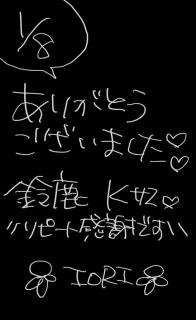 1/8
ありがとう
ございました♡♡
鈴鹿 Kせz♡
〃リピート感謝だすい
IORI